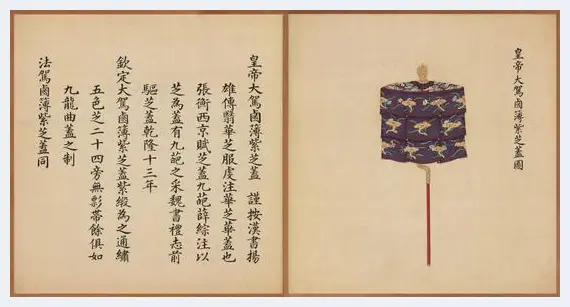 皇帝大駕鹵薄紫芝蓋圖
皇帝大駕鹵薄紫芝蓋 謹按漢書揚
雄傳翳華芝服虔注華芝華蓋也
張衡西京賦芝蓋九葩薛綜注以
芝為蓋有九葩之采魏書禮志前
驅芝蓋乾隆十三年
欽定大駕鹵薄紫芝蓋紫緞為之通繡
五色芝二十四旁無彩帶餘俱如
九龍曲蓋之制
法駕鹵薄紫芝蓋同